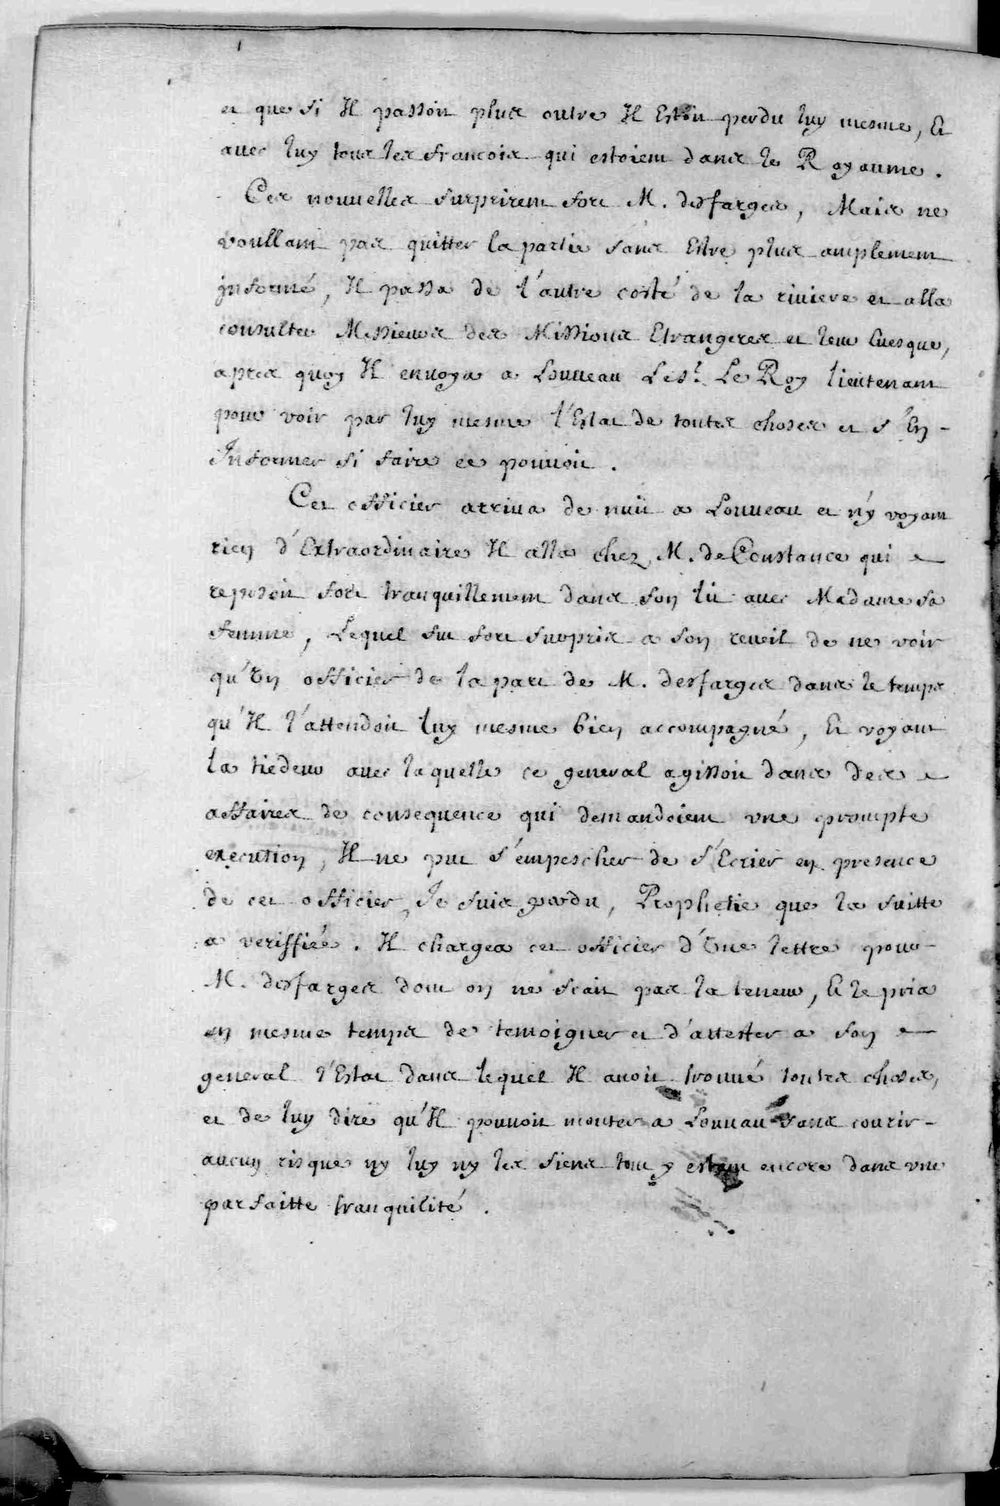 et que si Il passoit plus outre Il Estoit perdu luy mesme, Et
avec luy tous les francois qui estoient dans le Royaume.
Ces nouvelles surprirent fort M. desfarges, Mais ne
voullant pas quitter la partie sans Estre plus amplement
jnformé, Il passa de l'autre costé de la riviere et alla
consulter Messieurs des Missions Etrangeres et leur Evesque,
apres quoy Il envoya a Louveau Le Sr. Le Roy lieutenant
pour voir par luy mesme l'Estat de toutes choses et s'En-
Jnformer si faire ce pouvoit.
Cet officier arriva de nuit a Louveau et n'y voyant
rien d'Extraordinaire Il alla chez M. de Constance qui
reposoit fort tranquillement dans son lit avec Madame sa
femme, Lequel fut fort surpris a son reveil de ne voir
qu'Un officier de la part de M. desfarges dans le temps
qu'Il l'attendoit luy mesme bien accompagné, Et voyant
la tiedeur avec laquelle ce general agissoit dans des
affaires de consequence qui demandoient une prompte
execution, Il ne put s'empescher de s'Ecrier en presence
de cet officier, Je suis perdu, Prophetie que la suitte
a veriffiée. Il chargea cet officier d'Une lettre pour
M. desfarges dont on ne scait pas la teneur, Et le pria
en mesme temps de temoigner et d'attester a son
general l'Estat dans lequel Il avoit trouvé toutes choses,
et de luy dire qu'Il pouvoit monter a Louvau sans courir-
aucun risque ny luy ny les siens tout y estant encore dans une
parfaitte tranquilité.